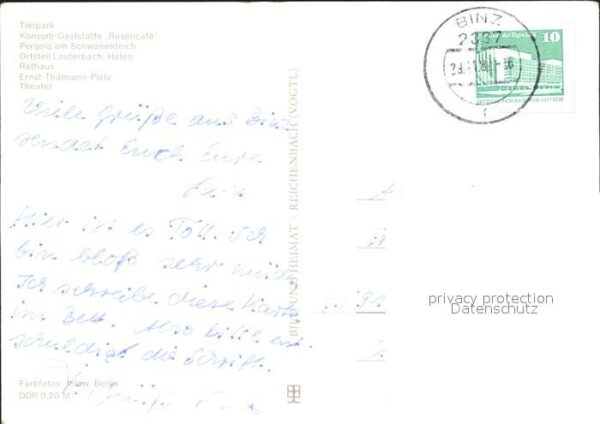 Tierpark
Konsum-Gaststätte „Rosencafé“
Pergola am Schwanenteich
Ortsteil Lauterbach, Hafen
Rathaus
Ernst-Thälmann-Platz
Theater
BINZ
2337
10
f
Viele Grüße aus Binz
sendet Euch Eure
Hier ist es Toll. Ich
bin bloß sehr müde.
Ich schreibe diese Karte
im Bett. Also bitte ent-
schuldigt die Schrift.
BILD UND HEIMAT · REICHENBACH (VOGTL)
privacy protection
Datenschutz
Farbfotos: Ihlow, Berlin
DDR 0,20 M